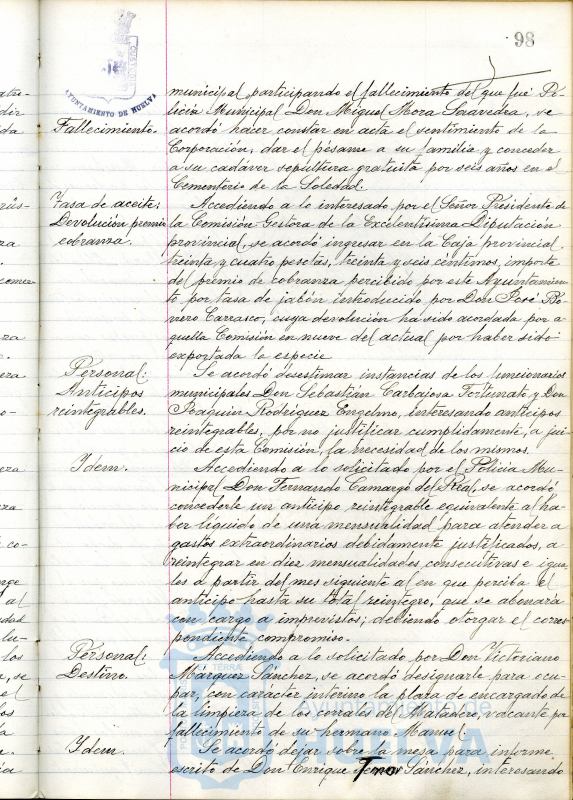 98
AYUNTAMIENTO DE HUELVA
municipal participando el fallecimiento del que fué Po-
licía Municipal Don Miguel Mora Saavedra, se
Fallecimiento.
acordó hacer constar en acta el sentimiento de la
Corporación, dar el pésame a su familia y conceder
a su cadáver sepultura gratuita por seis años en el
Cementerio de la Soledad.
Tasa de aceite:
Devolución premio
cobranza.
Accediendo a lo interesado por el Señor Presidente de
la Comisión Gestora de la Excelentísima Diputación
provincial, se acordó ingresar en la Caja provincial
treinta y cuatro pesetas, treinta y seis céntimos, importe
del premio de cobranza percibido por este Ayuntamien-
to por tasa de jabón introducido por Don José Ro-
mero Carrasco, cuya devolución ha sido acordada por a-
quella Comisión en nueve del actual por haber sido
exportada la especie
Personal:
Anticipos
reintegrables.
Se acordó desestimar instancias de los funcionarios
municipales Don Sebastián Carbajosa Fortunato y Don
Joaquín Rodríguez Engelmo, interesando anticipos
reintegrables, por no justificar cumplidamente, a jui-
cio de esta Comisión, la necesidad de los mismos.
Idem.
Accediendo a lo solicitado por el Policía Mu-
nicipal Don Fernando Camargo del Real, se acordó
concederle un anticipo reintegrable equivalente al ha-
ber líquido de una mensualidad para atender a
gastos extraordinarios debidamente justificados, a
reintegrar en diez mensualidades consecutivas e igua-
les a partir del mes siguiente al en que perciba el
anticipo hasta su total reintegro, que se abonará
con cargo a imprevistos; debiendo otorgar el corres
pondiente compromiso.
Personal:
Destino.
Accediendo a lo solicitado por Don Victoriano
Márquez Sánchez, se acordó designarle para ocu-
par, con carácter interino la plaza de encargado de
la limpieza de los corrales del Matadero, vacante por
fallecimiento de su hermano Manuel.
Idem.
Se acordó dejar sobre la mesa para informe
escrito de Don Enrique Sánchez, interesando
Ayuntamiento de
HUELVA